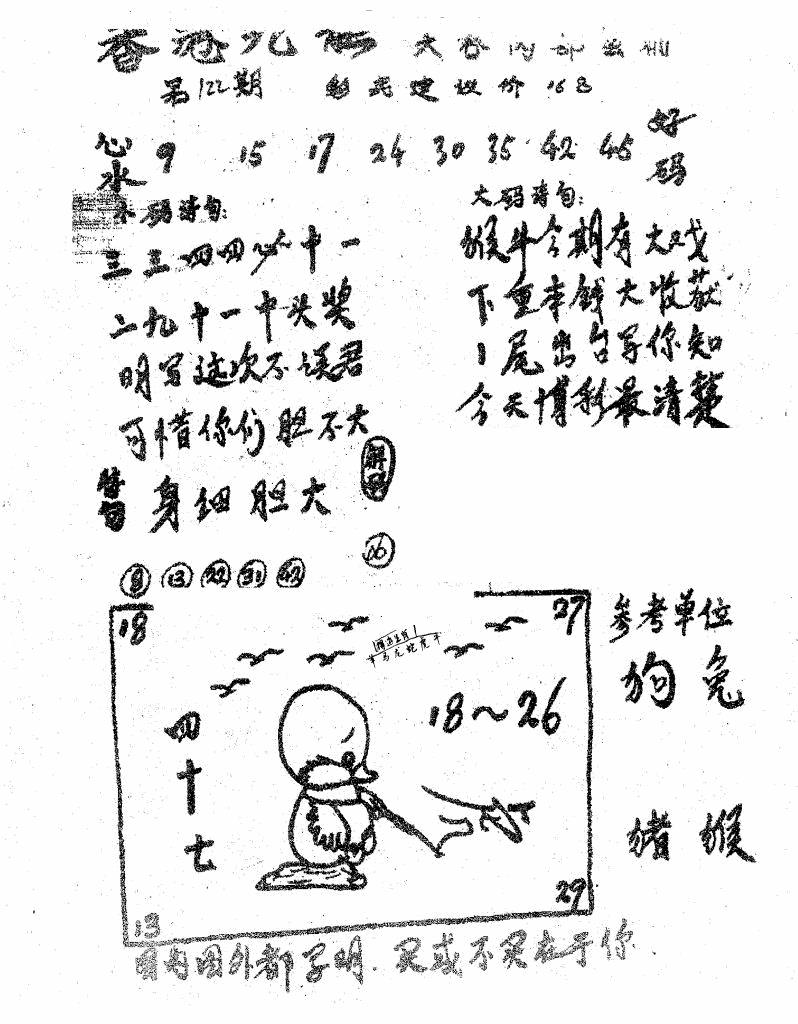 香港九
第122期 彩民建议价 16
心水 9 15 17 24 30 35 42 45 好码
码诗句: 大码诗句:
三三四四 中一
二九十一中头奖
明写这次不误君
可惜你们胆不大
猴牛今期有大戏
下重本钱大收获
1尾出台写你知
今天博彩最清楚
特句 身细胆大
解
26
8 13 22 31 42
18 27
18~26
四十七
13 29
参考单位
狗 兔
猪 猴
图内图外都写明. 灵或不灵在于你